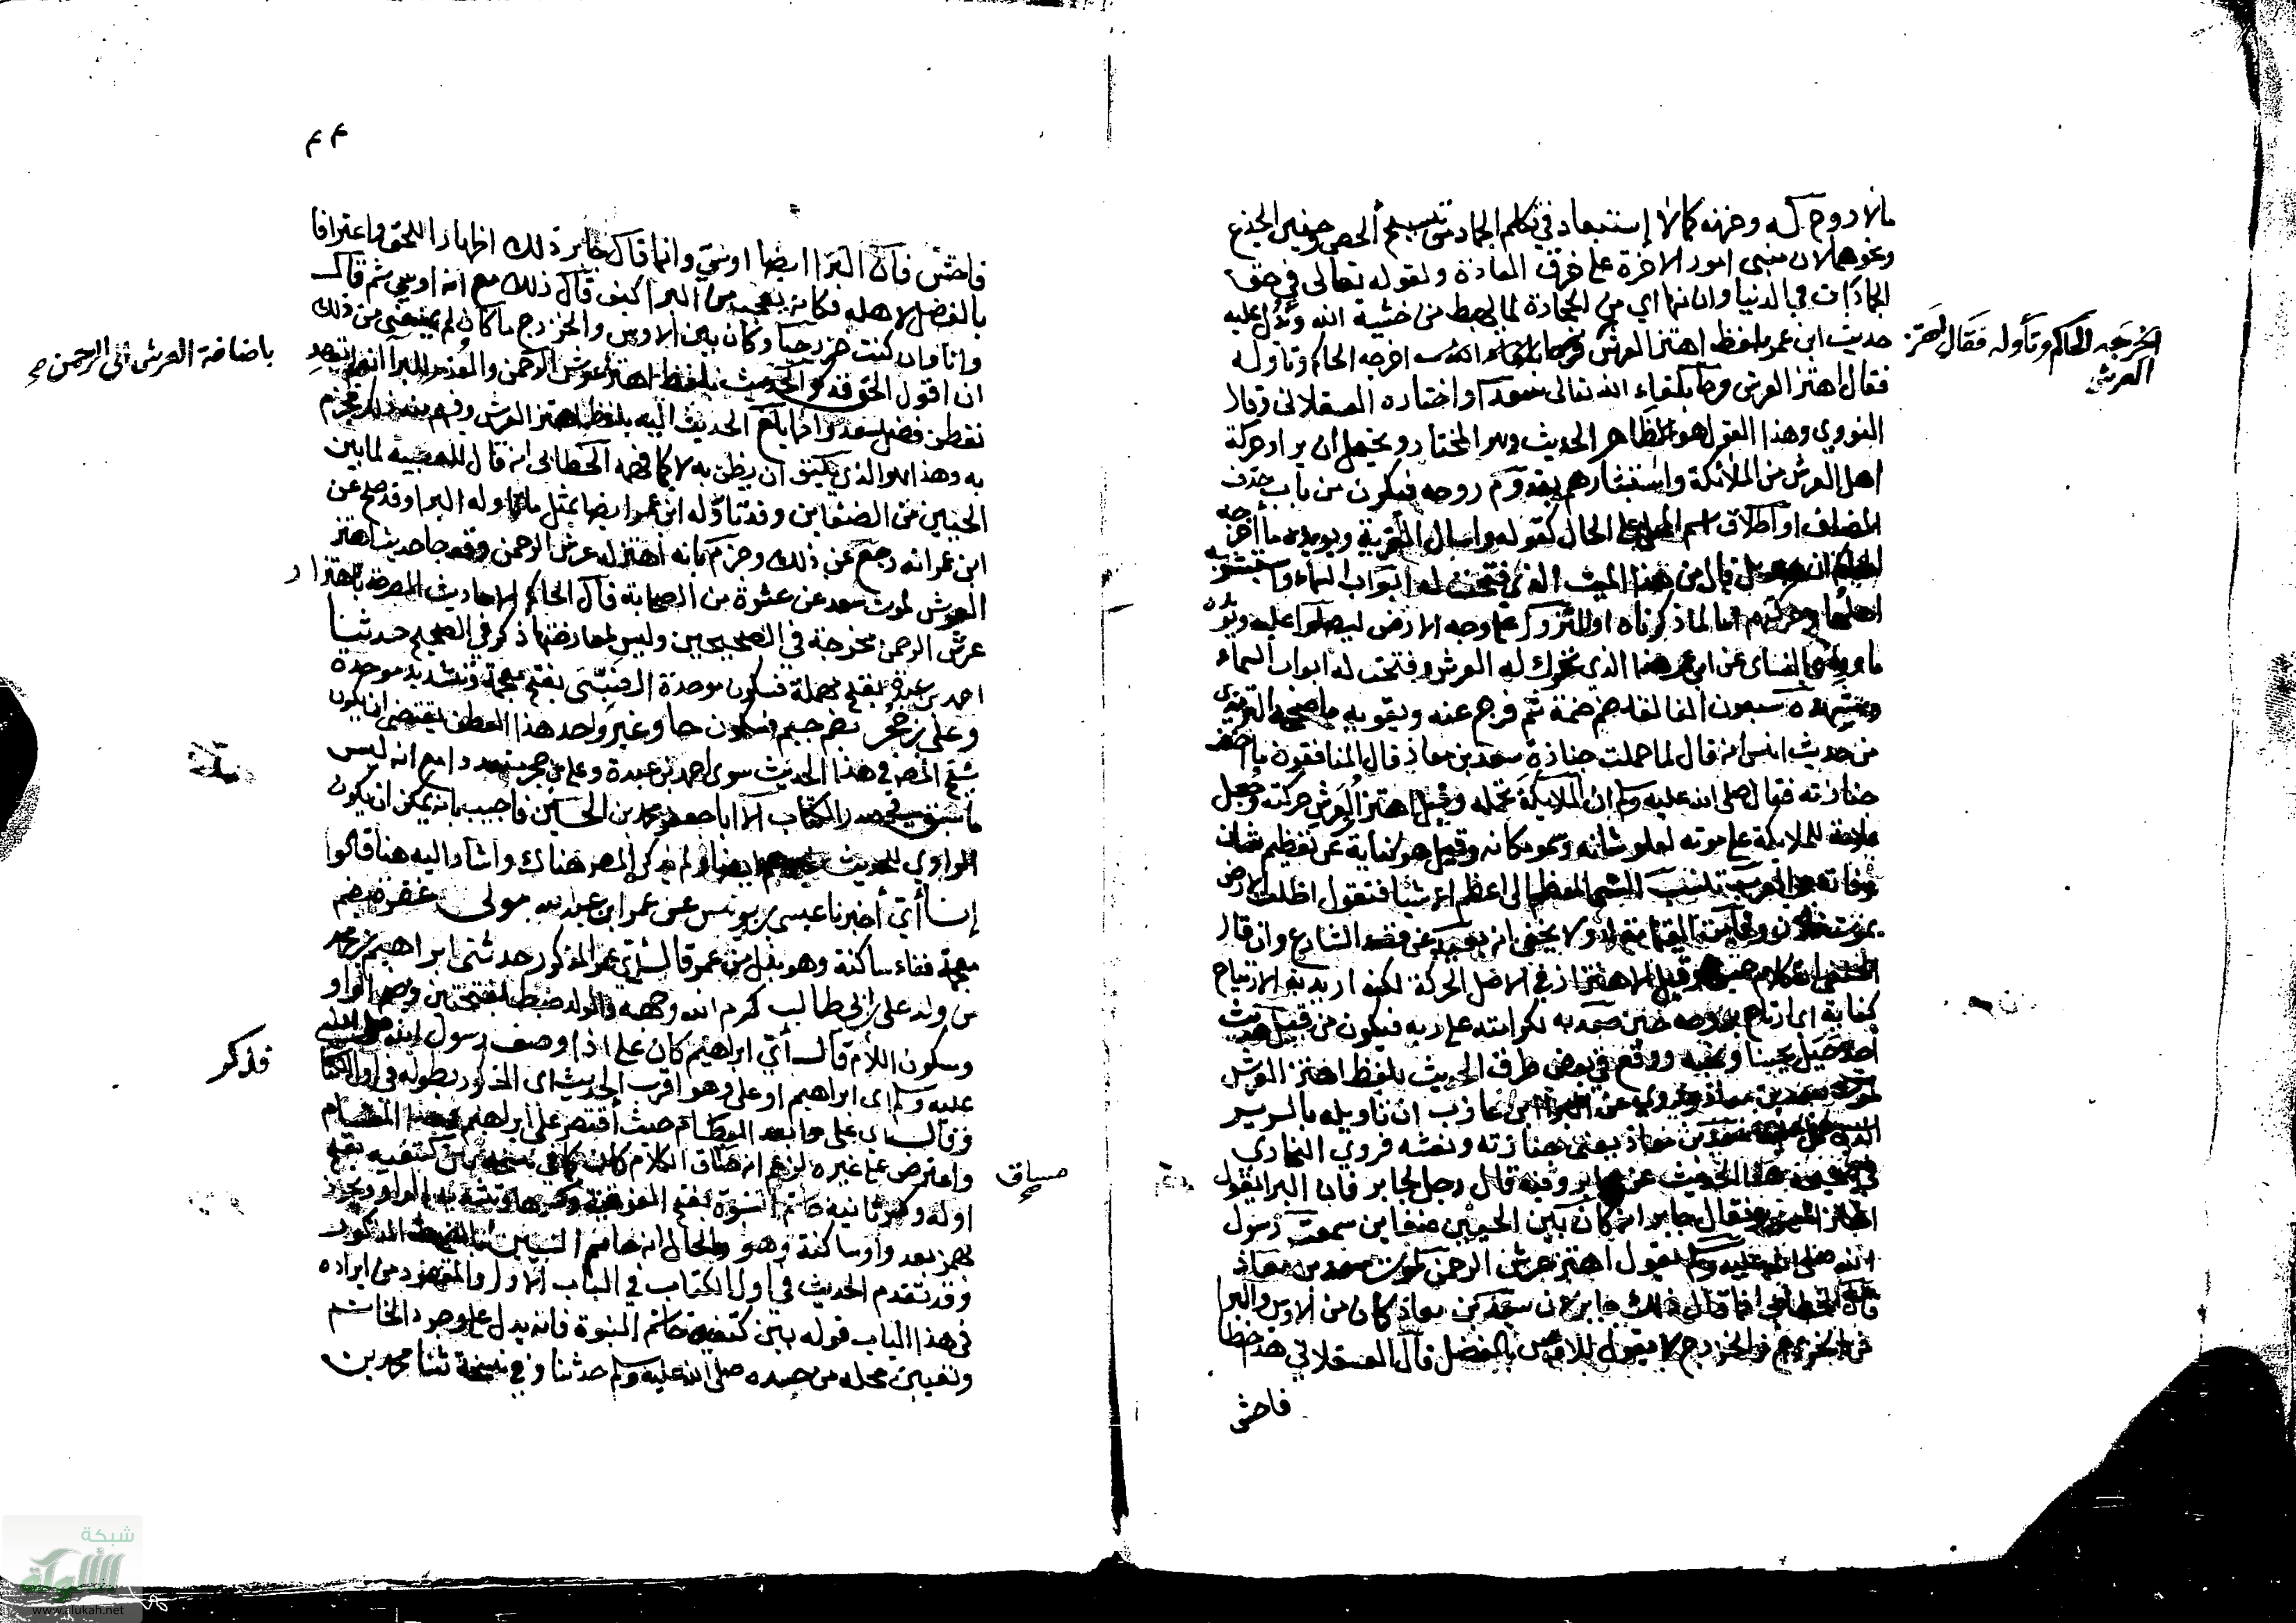 مالا روح له وحزنه كما لا إستبعاد في تكلم الجماد من تسبيح الحصى وحنين الجذع
ونحوهما لان مبنى امور الاخرة على خرق العادة ولقوله تعالى في حق
الجمادات في الدنيا وان منها اي من الحجارة لما يهبط من خشية الله ويدل عليه
حديث ابن عمر بلفظ اهتز العرش فرحا اخرجه الحاكم وتاوله
اخرجه الحاكم وتأوله فقال اهتز
العرش
فقال اهتز العرش فرحا بلقاء الله تعالى سعدا واختاره العسقلاني وقال
النووي وهذا القول هو ظاهر الحديث وهو المختار ويحتمل ان يراد حركة
اهل العرش من الملائكة واستبشارهم بقدوم روحه فيكون من باب حذف
المضاف او اطلاق اسم المحل على الحال كقوله واسال القرية ويويده ما أخرجه
الحاكم ان جبريل قال من هذا الميت الذي فتحت له ابواب السماء واستبشر به
اهلها وحركتهم اما لما ذكرناه او للنزول على وجه الارض ليصلوا عليه ويؤيده
ما رواه النساى عن ابن عمر هذا الذي تحرك له العرش وفتحت له ابواب السماء
وشهده سبعون الفا لقد ضم ضمة ثم فرج عنه ويقويه ما صححه الترمذي
من حديث انس انه قال لما حملت جنازة سعد بن معاذ قال المنافقون ما اخف
جنازته فقال صلى الله عليه وسلم ان الملايكة تحمله وقيل اهتز العرش حركته وجعل
علامة للملايكة على موته لعلو شانه وسمو مكانه وقيل هو كناية عن تعظيم شان
وفاته والعرب تنسب الشي المعظم الى اعظم الاشيا فتقول اظلمت الارض
بموت فلان وقامت القيامة له ولا يخفى انه بعيد عن قصد الشارع وان قال
كلام حسن وقيل الاهتزاز في الاصل الحركة لكنه اريد به الارتياح
كناية اى ارتاح بروحه حين صعد به لكرامته على ربه فيكون من قبيل حديث
أحد جبل يحبنا ونحبه ووقع في بعض طرق الحديث بلفظ اهتز العرش
لموت سعد بن معاذ وروي عن البرا ابن عازب ان تاويله بالسرير
الذي حمل عليه سعد بن معاذ يعنى جنازته ونعشه فروي البخاري
في صحيحه هذا الحديث عن جابر وفيه قال رجل لجابر فان البرا يقول
اهتز السرير فقال جابر انه كان بين الحيين ضغاين سمعت رسول
الله صلى الله عليه وسلم يقول اهتز عرش الرحمن لموت سعد بن معاذ
قال الخطابي انما قال ذلك جابر لان سعد بن معاذ كان من الاوس والبرا
من الخزرج والخزرج لا يقول للاوس بالفضل قال العسقلاني هذا خطا
فاحش
٤٤
فاحش فان البرا ايضا اوسي وانما قال جابر ذلك اظهارا للحق واعترافا
بالفضل لاهله فكانه يعجب من البرا كيف قال ذلك مع انه اوسي ثم قال
وانا وان كنت خزرجيا وكان بين الاوس والخزرج ما كان لم يمنعني من ذلك
ان اقول الحق فذكر الحديث بلفظ اهتز عرش الرحمن والعذر للبرا انه لم يقصد
باضافة العرش الى الرحمن صح
تغطية فضل سعد وانما بلغ الحديث اليه بلفظ اهتز العرش وفهم منه ذلك فجزم
به وهذا هو الذي يليق ان يظن به لا كما فهمه الخطابى انه قال للعصبية لما بين
الحيين من الضغاين وقد تاوله ابن عمر ايضا بمثل ما تاوله البرا وقد صح عن
ابن عمر انه رجع عن ذلك وجزم بانه اهتز له عرش الرحمن وقد جا حديث اهتز
العرش لموت سعد عن عشرة من الصحابة قال الحاكم الاحاديث المصرحة باهتزاز
عرش الرحمن مخرجة في الصحيحين وليس لمعارضها ذكر في الصحيح حدثنا
احمد بن عبدة بفتح مهملة فسكون موحدة الضبّي بفتح معجمة وتشديد موحدة
وعلي بن حجر بضم جيم فسكون حا وغير واحد هذا العطف يقتضي ان يكون
شيخ المصه في هذا الحديث سوى احمد بن عبدة وعلي بن حجر متعددا مع انه ليس
ما سبق في صدر الكتاب الا ابا جعفر محمد بن الحسين فاجيب بانه يمكن ان يكون
الراوي للحديث غيرهم ايضا ولم يذكر المصه هناك واشار اليه هنا قالوا
إنا أي أخبرنا عيسى بن يونس عن عمر ابن عبد الله مولى غفرة بضم
معجمة ففاء ساكنة وهو بدل من عمر قال أي عمر المذكور حدثني ابراهيم بن محمد
من ولد علي بن ابي طالب كرم الله وجهه والولد ضبط بفتحتين وبضم الواو
وسكون اللام قال أي ابراهيم كان علي اذا وصف رسول الله صلى الله
عليه وسلم اى ابراهيم او علي وهو اقرب الحديث اى المذكور بطوله في اول الكتاب
فذكر
وقال اي علي حيث اقتصر على ابراهيم المقام
واعترض على غيره لزعم انه سياق الكلام كان بين كتفيه بفتح
سياق صح
اوله وكسر ثانيه خاتم النبوة بفتح الفوقية وكسرها وتشديد الواو ويجوز
بهمز بعد واو ساكنة وهو والحال انه خاتم النبيين بالضبط المذكور
وقد تقدم الحديث في اول الكتاب في الباب الاول والمقصود من ايراده
في هذا الباب قوله بين كتفيه خاتم النبوة فانه يدل على وجود الخاتم
وتعيين محله من جسده صلى الله عليه وسلم حدثنا وفي نسخة ثنا محمد بن
شبكة
الألوكة
www.alukah.net